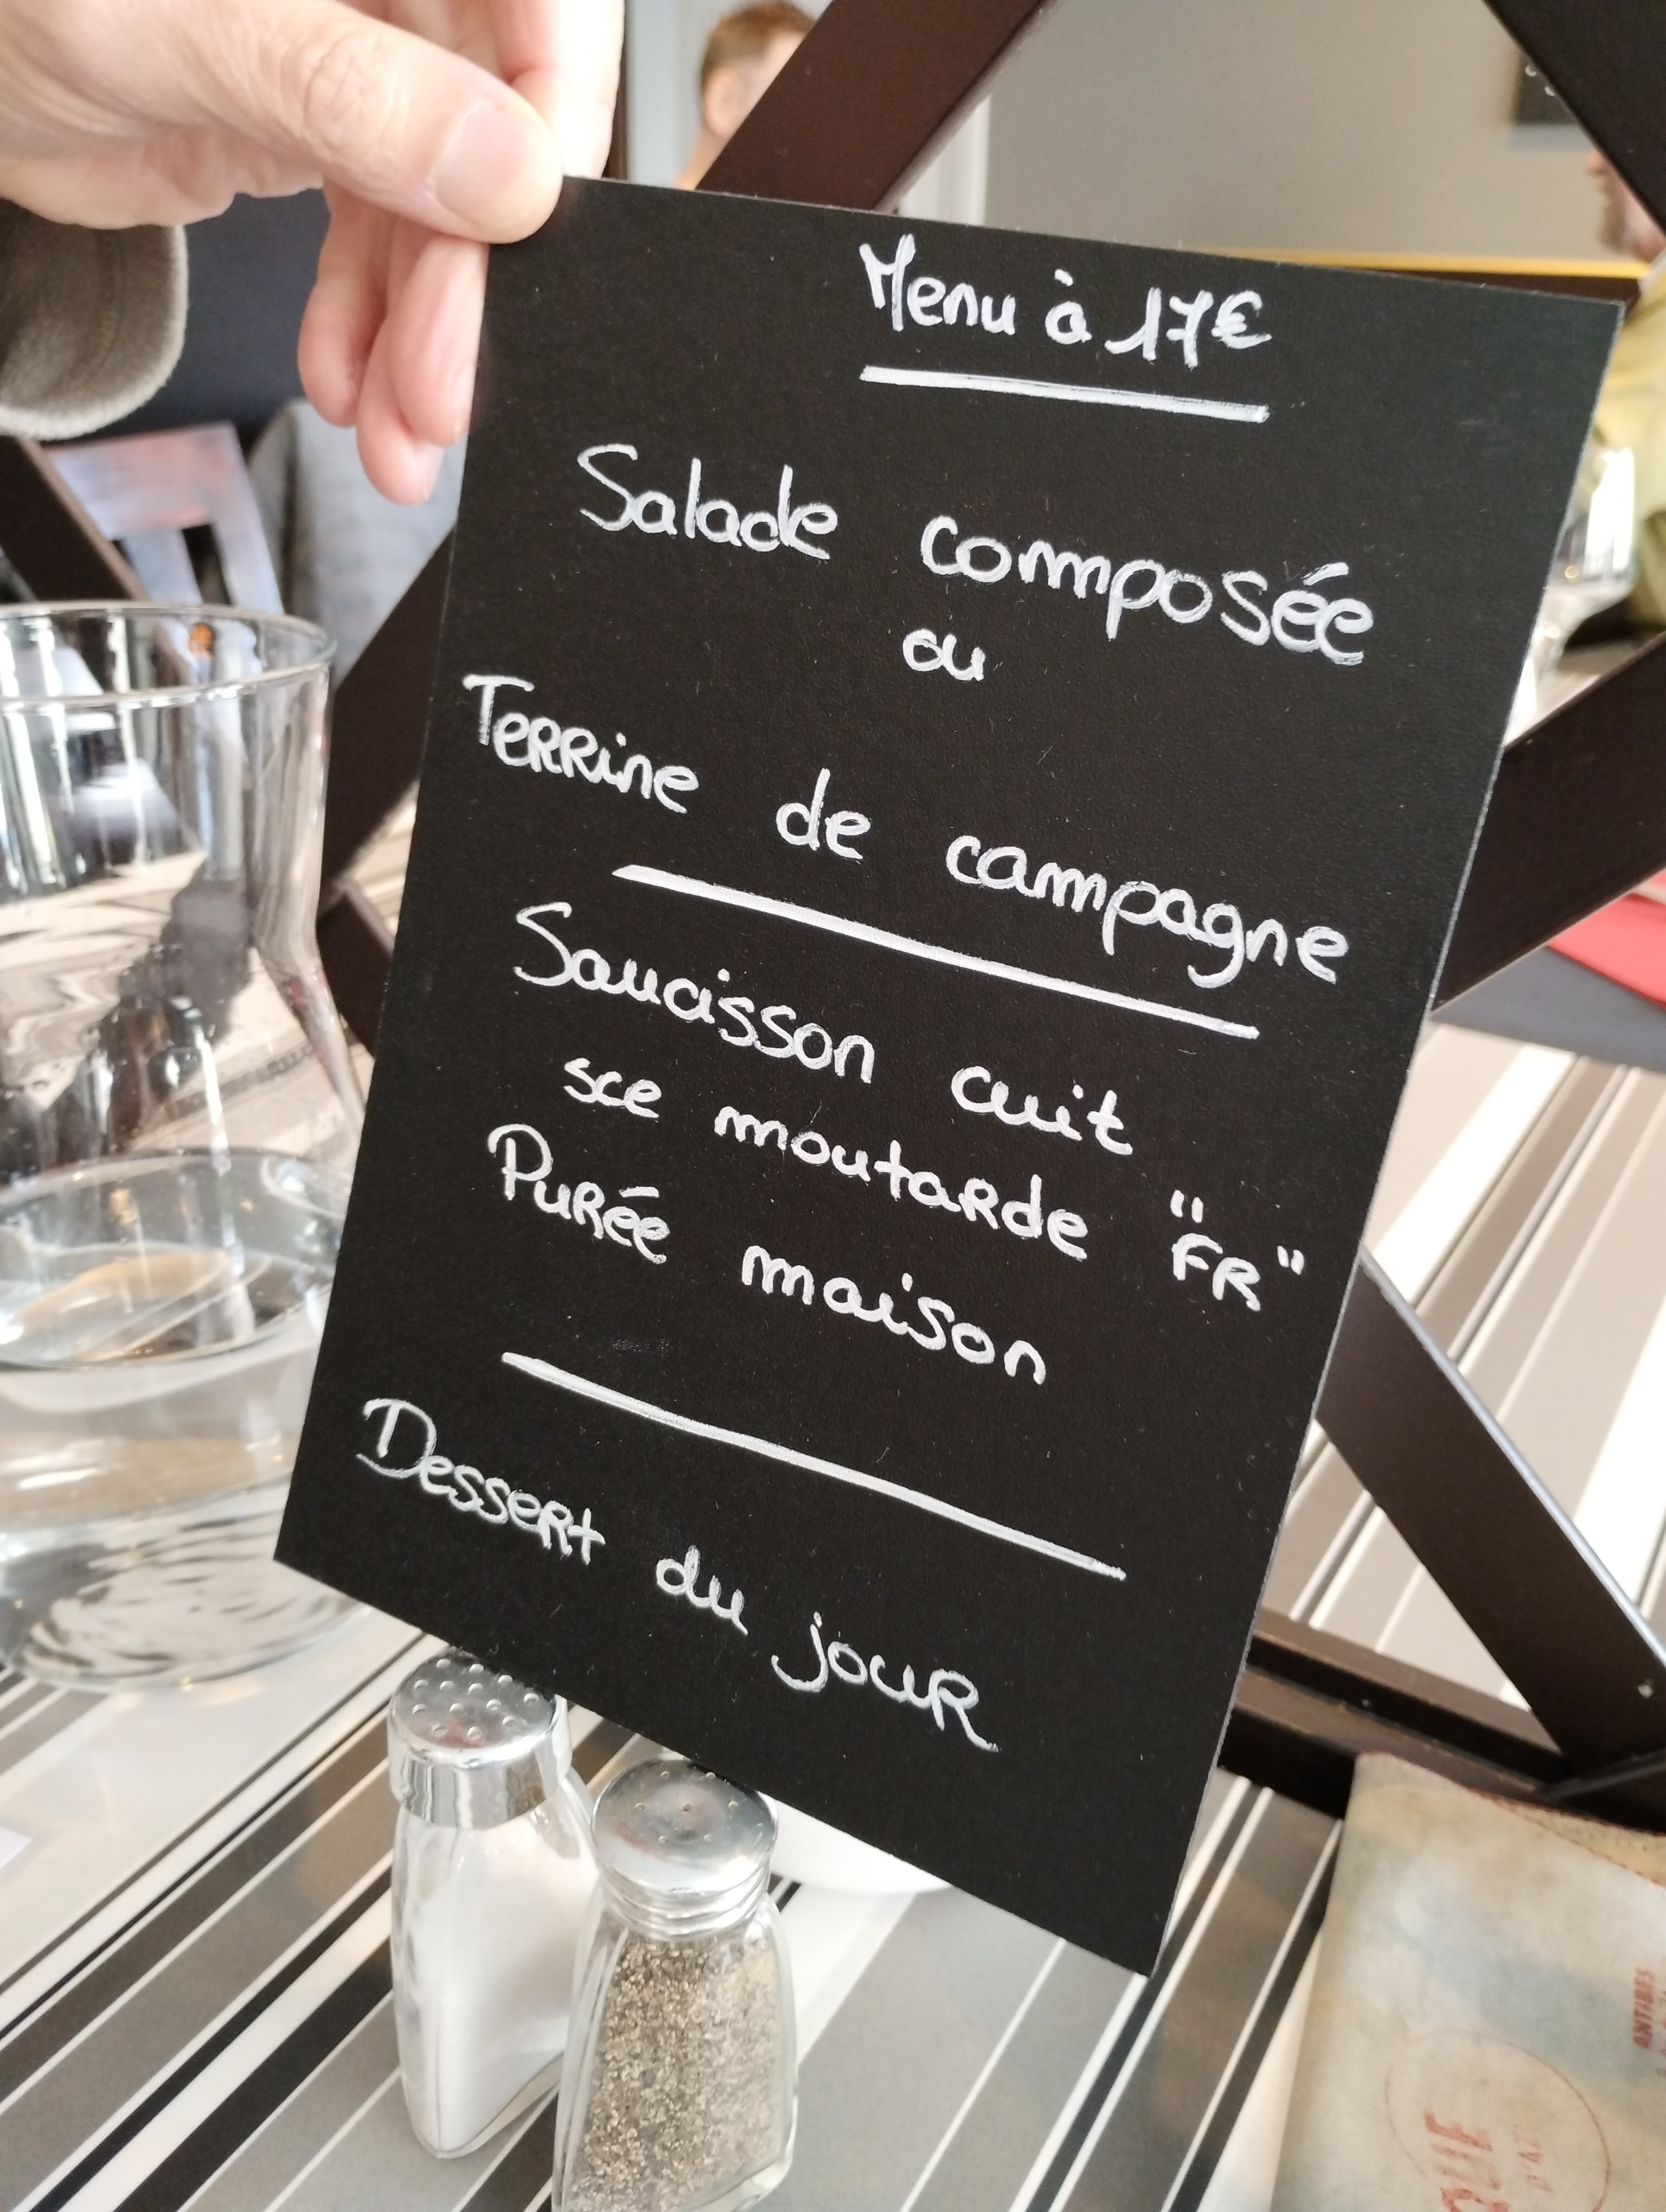 Menu à 17€
Salade composée
ou
Terrine de campagne
Saucisson cuit
sce moutarde "FR"
Purée maison
Dessert du jour